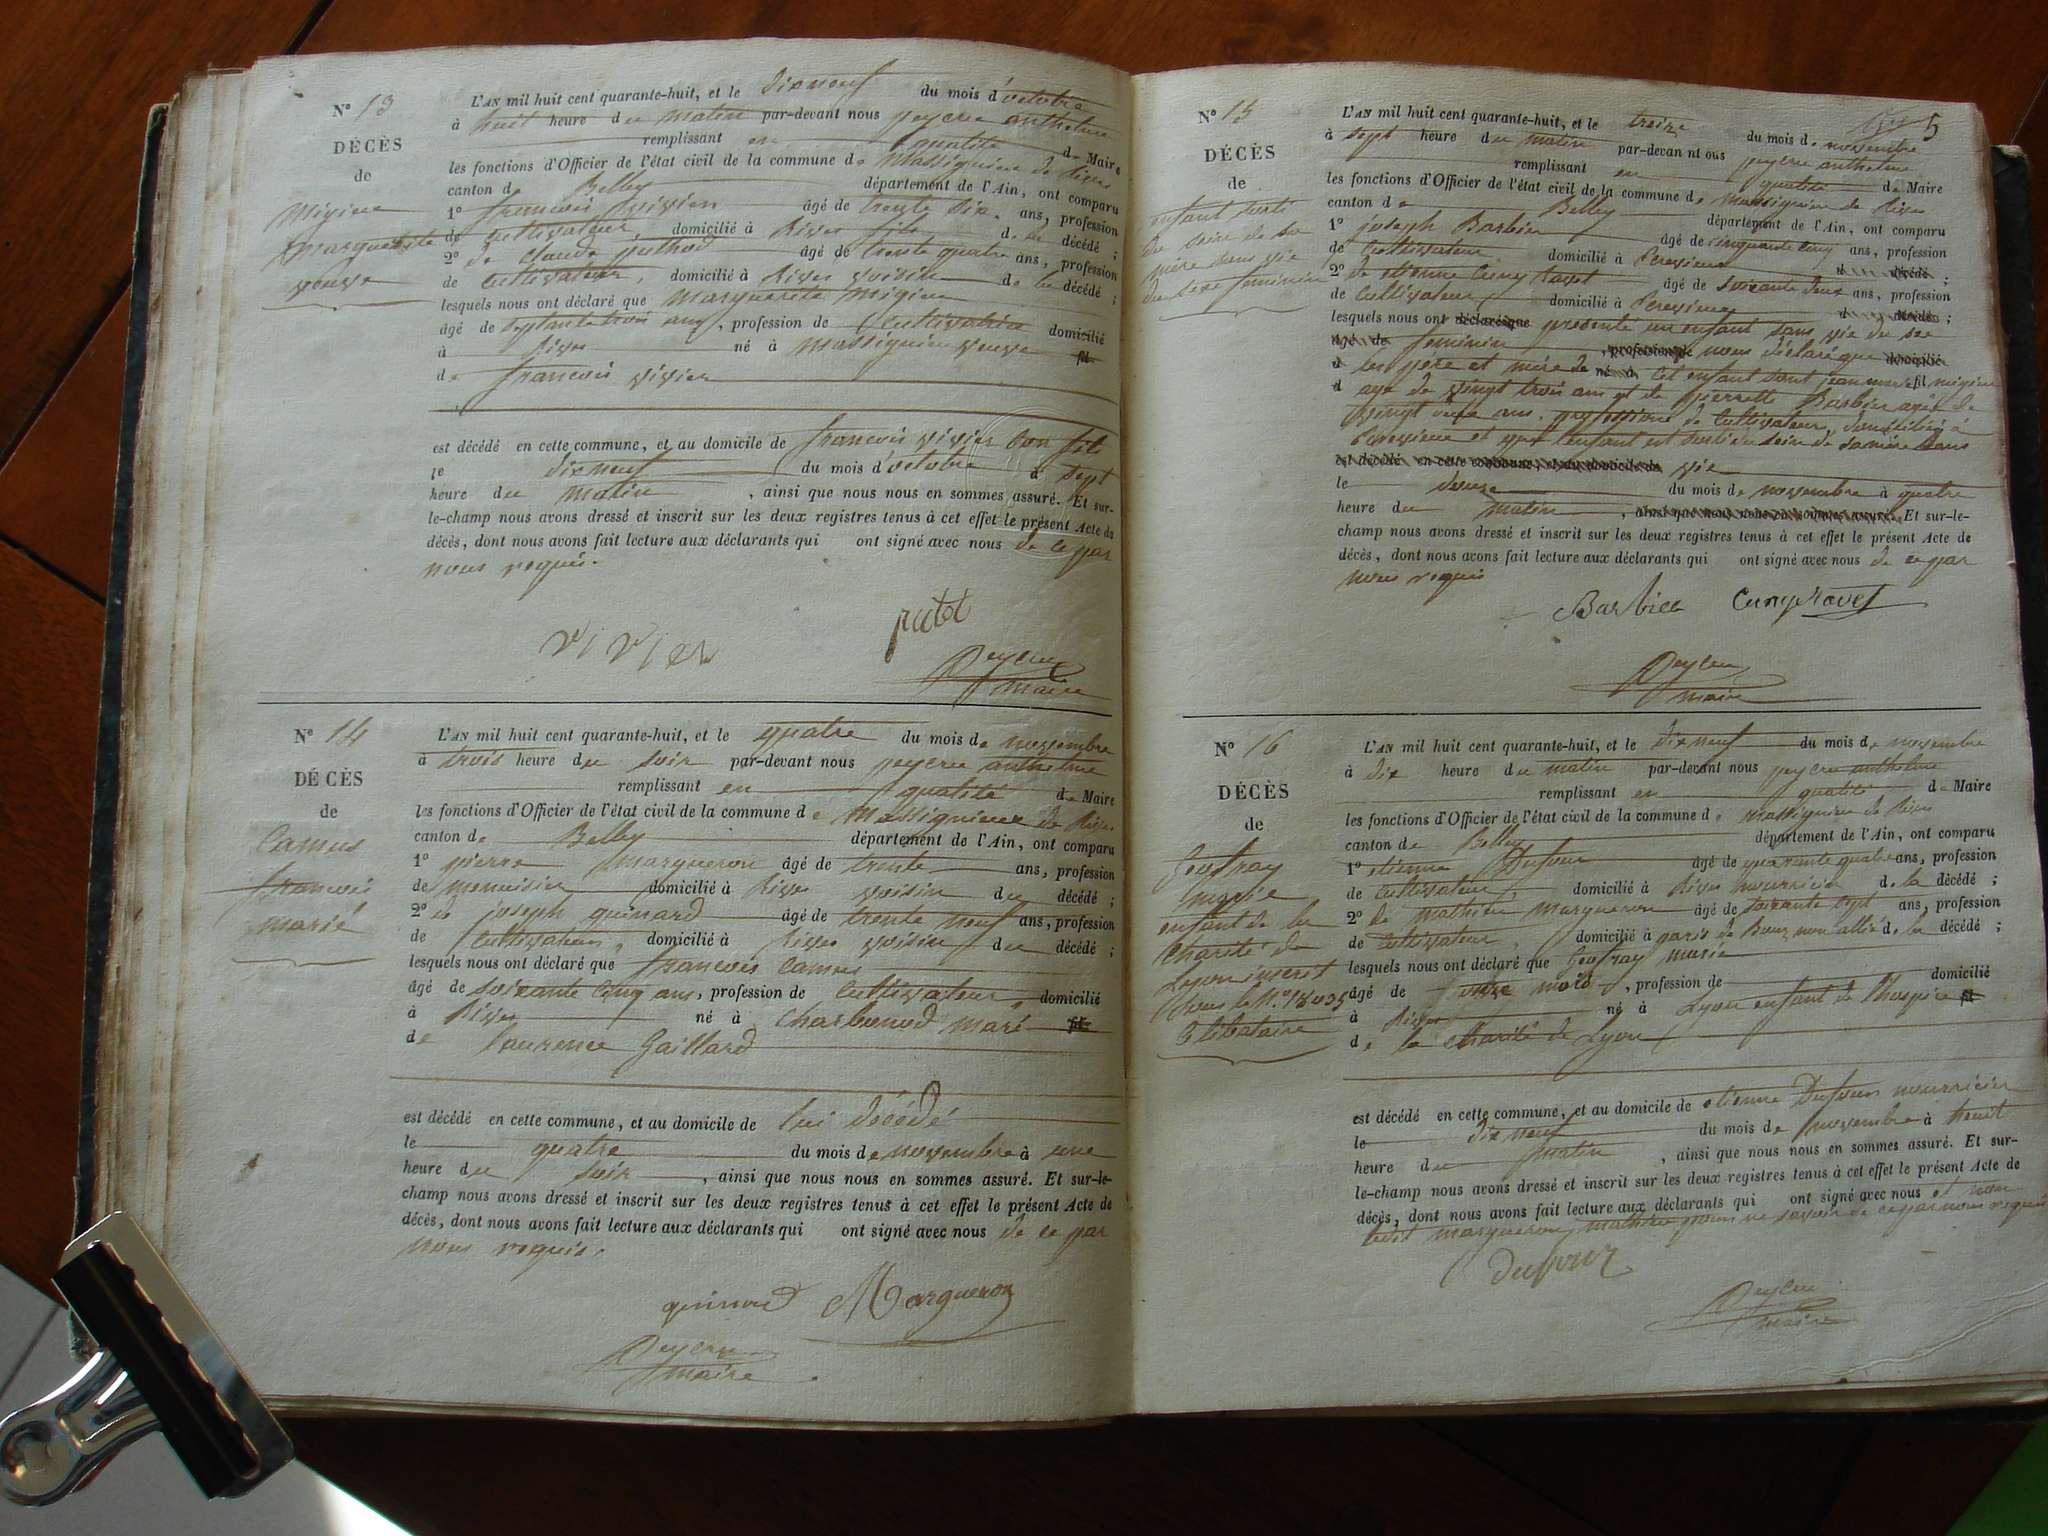 N° 13
DÉCÈS
de
Migieu
Marguerite
veuve
L'AN mil huit cent quarante-huit, et le dix neuf du mois d'octobre
à huit heure du matin par-devant nous peycru anthelme
remplissant en qualité de Maire
les fonctions d'Officier de l'état civil de la commune de Massignieu de Rives
canton de Belley département de l'Ain, ont comparu
1° francois vivier âgé de trente six ans, profession
de cultivateur, domicilié à Rives fils de la décédé ;
2° de claude puthod âgé de trente quatre ans, profession
de cultivateur, domicilié à Rives voisin de la décédé ;
lesquels nous ont déclaré que Marguerite Migieu
âgé de septante trois ans, profession de cultivatrice domicilié
à Rives né à Massignieu veuve fil
de francois vivier
est décédé en cette commune, et au domicile de francois vivier son fils
le dix neuf du mois d'octobre à sept
heure du matin, ainsi que nous nous en sommes assuré. Et sur-
le-champ nous avons dressé et inscrit sur les deux registres tenus à cet effet le présent Acte de
décès, dont nous avons fait lecture aux déclarants qui ont signé avec nous de ce par
nous requis.
vivier
Peycru
maire
N° 14
DÉCÈS
de
Camus
francois
marié
L'AN mil huit cent quarante-huit, et le quatre du mois de novembre
à trois heure du soir par-devant nous peycru anthelme
remplissant en qualité de Maire
les fonctions d'Officier de l'état civil de la commune de Massignieu de Rives
canton de Belley département de l'Ain, ont comparu
1° pierre margueron âgé de trente ans, profession
de menuisier domicilié à Rives voisin du décédé ;
2° de joseph guinard âgé de trente neuf ans, profession
de cultivateur, domicilié à Rives voisin du décédé ;
lesquels nous ont déclaré que francois camus
âgé de soixante cinq ans, profession de cultivateur, domicilié
à Rives né à charbonod marié fil
de laurence Gaillard
est décédé en cette commune, et au domicile de lui décédé
le quatre du mois de novembre à une
heure du soir, ainsi que nous nous en sommes assuré. Et sur-le-
champ nous avons dressé et inscrit sur les deux registres tenus à cet effet le présent Acte de
décès, dont nous avons fait lecture aux déclarants qui ont signé avec nous de ce par
nous requis.
guinard Margueron
Peycru
maire
5
N° 15
DÉCÈS
de
enfant sorti
du sein de sa
mère sans vie
du sexe féminin
L'AN mil huit cent quarante-huit, et le treize du mois de novembre
à sept heure du matin par-devan nt ous peycru anthelme
remplissant en qualité de Maire
les fonctions d'Officier de l'état civil de la commune de Massignieu de Rives
canton de Belley département de l'Ain, ont comparu
1° joseph Barbier âgé de cinquante cinq ans, profession
de cultivateur domicilié à d décédé ;
2° de etienne Cuny ravet âgé de soixante deux ans, profession
de cultivateur domicilié à d décédé ;
lesquels nous ont déclaré que présenté un enfant sans vie du sexe
âgé de féminin, profession de nous déclaré que domicilié
à les père et mère de né à cet enfant sont fil migieu
d âgé de vingt trois ans et de pierrette Barbier agée de
vingt ans. profession de cultivateur, domicilié à
et que l'enfant est sorti du sein de sa mère sans
est décédé en cette commune, et au domicile de vie
le douze du mois de novembre à quatre
heure du matin, ainsi que nous nous en sommes assuré. Et sur-le-
champ nous avons dressé et inscrit sur les deux registres tenus à cet effet le présent Acte de
décès, dont nous avons fait lecture aux déclarants qui ont signé avec nous de ce par
nous requis
Barbier Cunyravet
Peycru
maire
N° 16
DÉCÈS
de
Geofray
marie
enfant de la
charité de
Lyon inscrit
sous le N°
Célibataire
L'AN mil huit cent quarante-huit, et le dix neuf du mois de novembre
à dix heure du matin par-devant nous peycru anthelme
remplissant en qualité de Maire
les fonctions d'Officier de l'état civil de la commune de Massignieu de Rives
canton de Belley département de l'Ain, ont comparu
1° etienne Dufour âgé de quarante quatre ans, profession
de cultivateur, domicilié à Rives nourricier de la décédé ;
2° de mathieu margueron âgé de soixante sept ans, profession
de cultivateur, domicilié à non allié de la décédé ;
lesquels nous ont déclaré que Geofray marie
âgé de onze mois, profession de domicilié
à Rives né à Lyon enfant de l'hospice fil
de la charité de Lyon
est décédé en cette commune, et au domicile de etienne Dufour nourricier
le dix neuf du mois de novembre à huit
heure du matin, ainsi que nous nous en sommes assuré. Et sur-
le-champ nous avons dressé et inscrit sur les deux registres tenus à cet effet le présent Acte de
décès, dont nous avons fait lecture aux déclarants qui ont signé avec nous et non
ledit margueron mathieu pour ne savoir de ce par nous requis
dufour
Peycru
maire